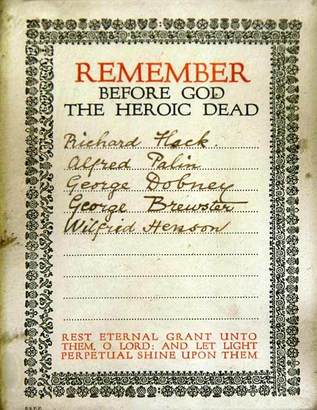 REMEMBER
BEFORE GOD
THE HEROIC DEAD
Richard Hack.
Alfred Palin
George Dobney
George Brewster
Wilfrid Henson
REST ETERNAL GRANT UNTO
THEM, O LORD: AND LET LIGHT
PERPETUAL SHINE UPON THEM